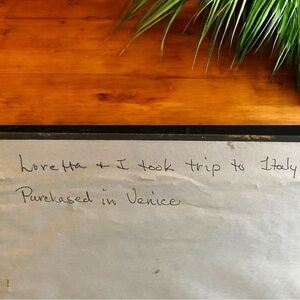 Loretta + I took trip to Italy
Purchased in Venice